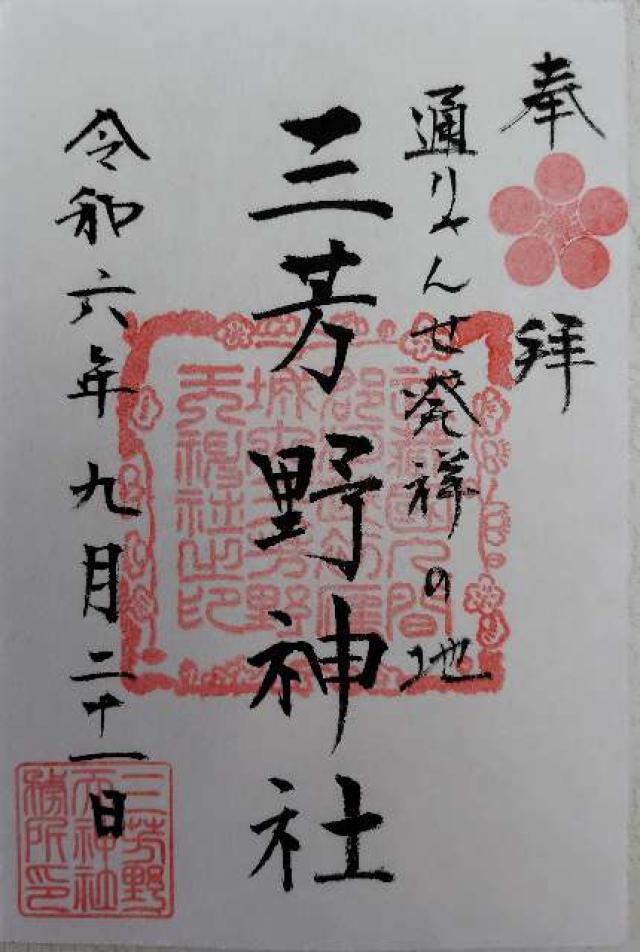 奉拝
通りゃんせ発祥の地
三芳野神社
令和六年九月二十一日
三芳野
天神社
務所印